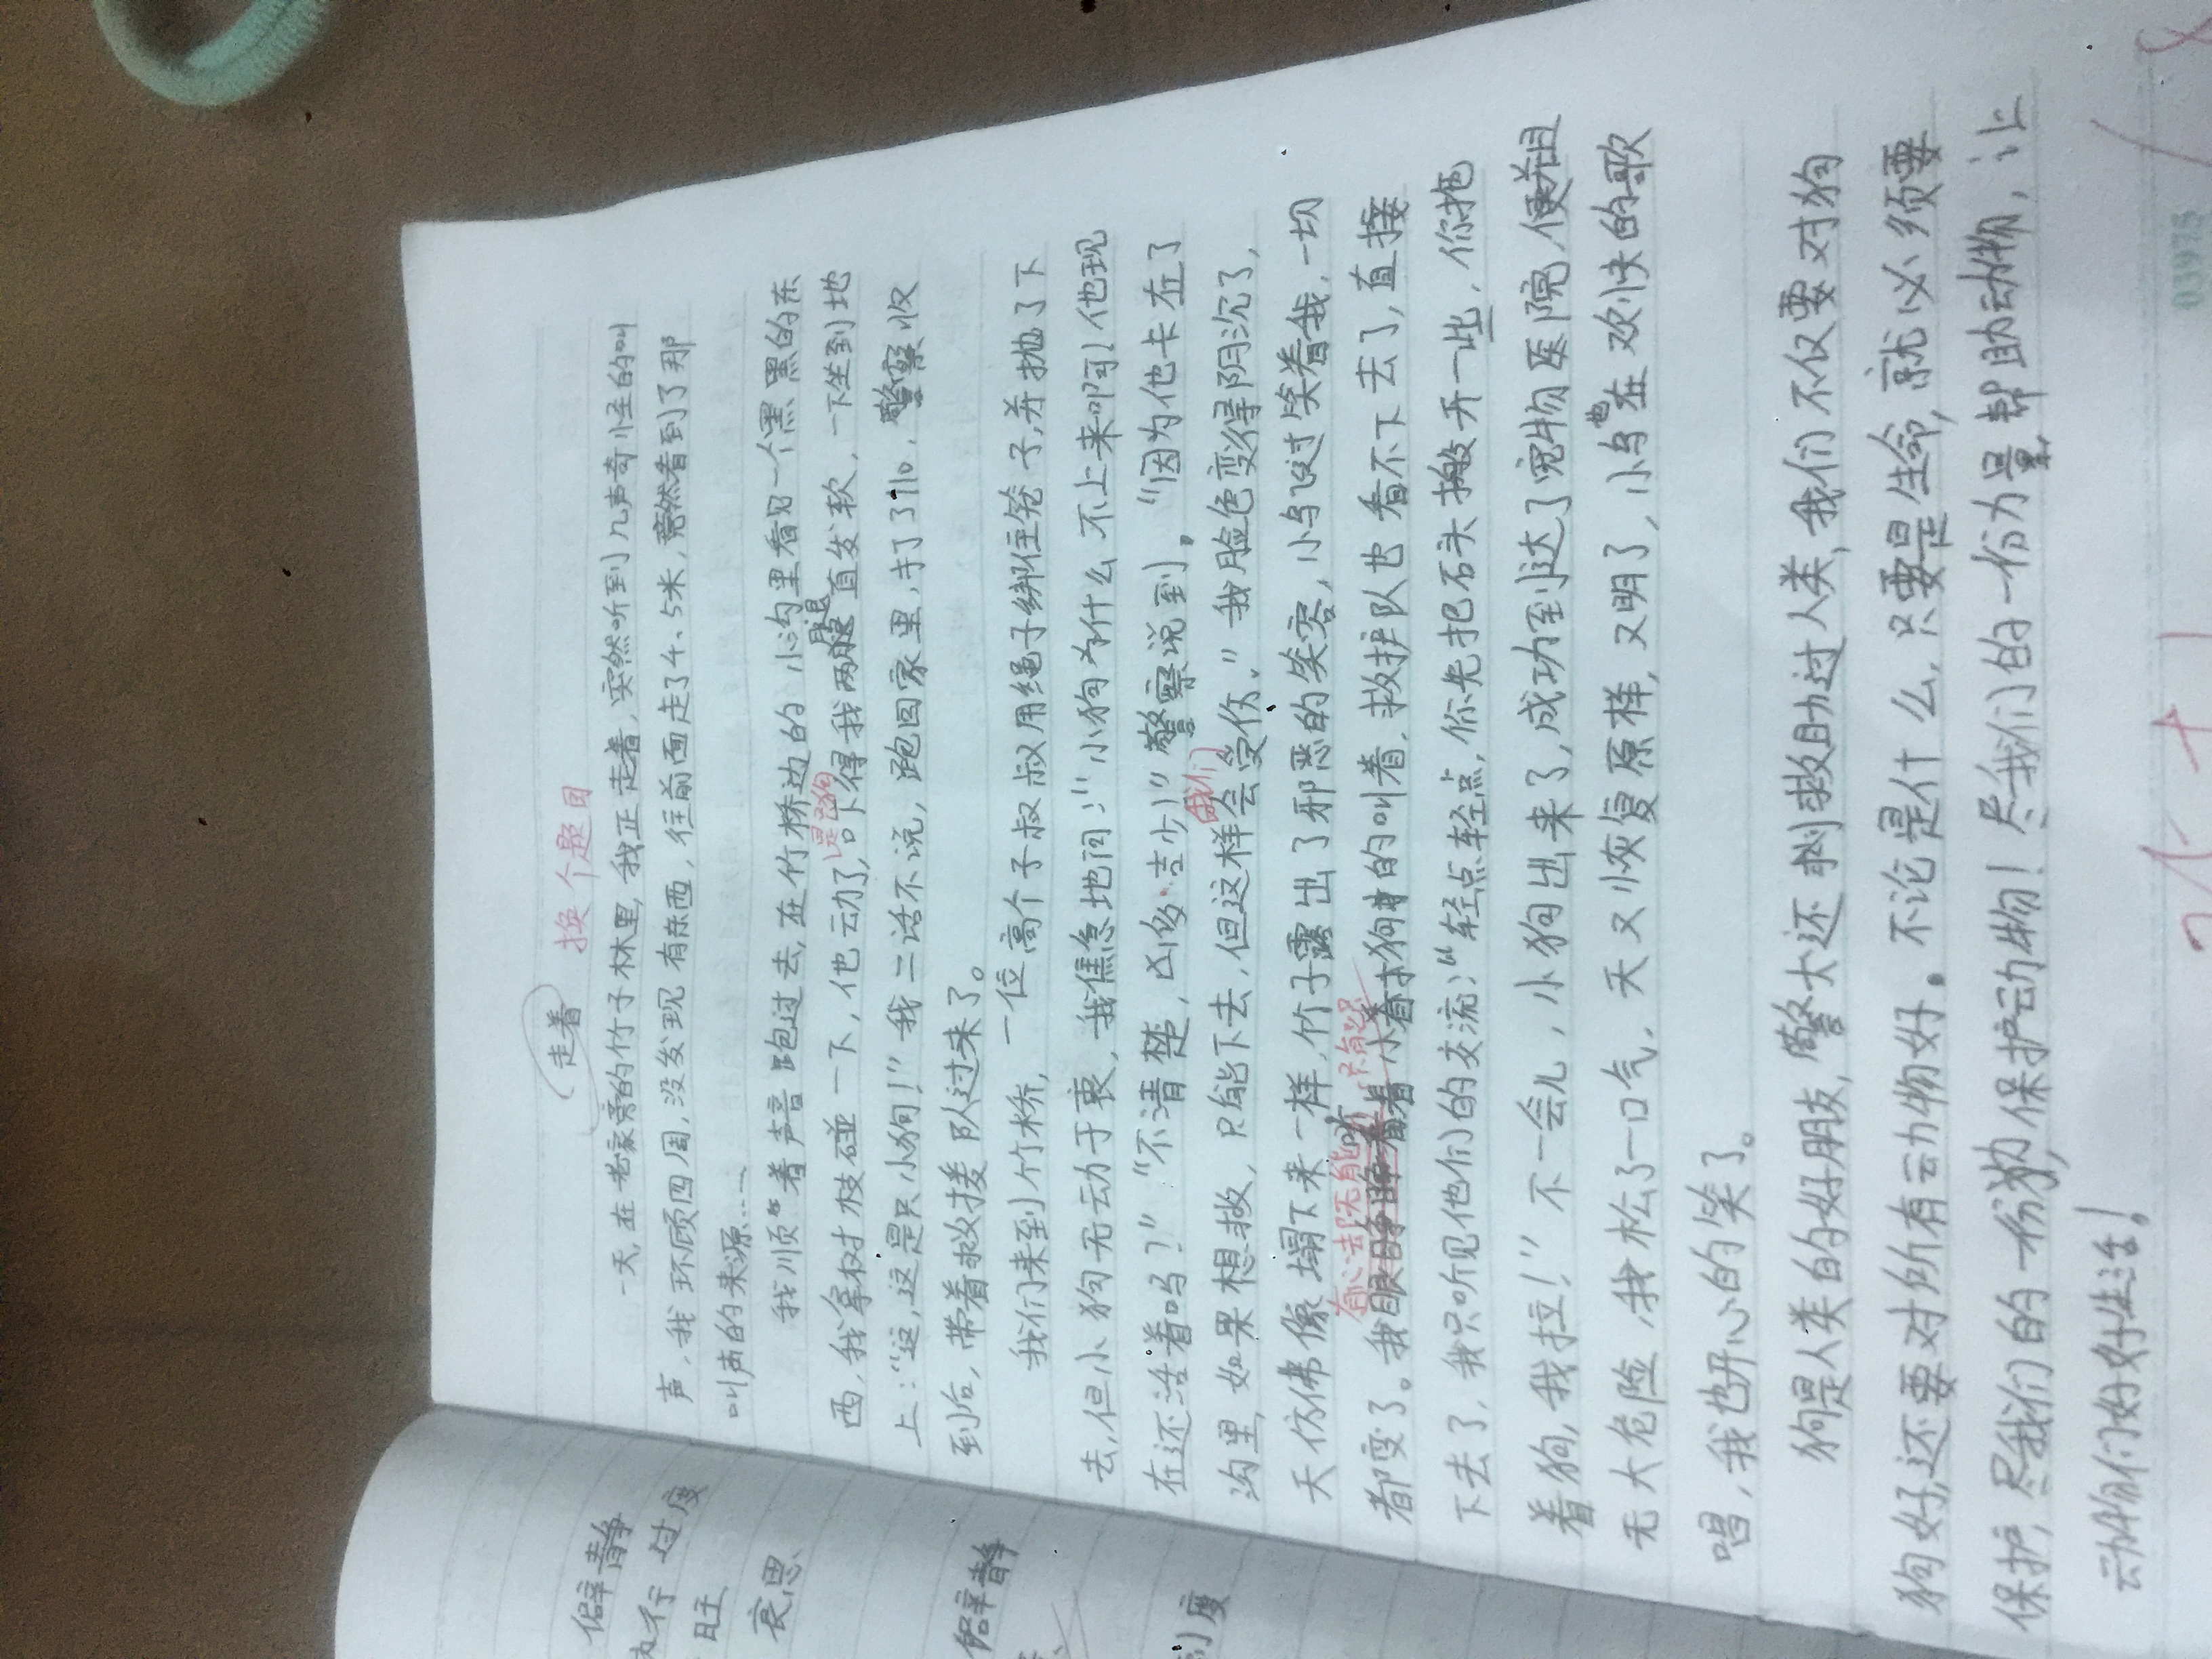 走着 换个题目
一天,在老家旁的竹子林里,我正走着,突然听到几声奇怪的叫
声,我环顾四周,没发现有东西,往前面走了4、5米,竟然看到了那
叫声的来源……
我顺着声音跑过去,在竹桥边的小沟里看见一个黑黑的东
西,我拿树枝碰一下,他动了,吓得我两腿直发软,一下坐到地
是只狗
上:“这,这是只小狗!”我二话不说,跑回家里,打了110,警察收
到后,带着救援队过来了。
我们来到竹桥,一位高个子叔叔用绳子绑住笼子,并抛了下
去,但小狗无动于衷,我焦急地问:“小狗为什么不上来啊?他现
在还活着吗?”“不清楚,凶多吉少!”警察说到,“因为他卡在了
我们
沟里,如果想救,只能下去,但这样会受伤。”我脸色变得阴沉了,
天仿佛像塌下来一样,竹子露出了邪恶的笑容,小鸟飞过笑着我,一切
有心去却无能 只能
都变了。我小狗的叫着,救护队也看不下去了,直接
下去了,我只听见他们的交流:“轻点轻点,你先把石头搬开一些,你拖
着狗,我拉!”不一会儿,小狗出来了,成功到达了宠物医院,便并且
无大危险,我松了一口气,天又恢复原样,又明了,小鸟也在欢快的歌
唱,我也开心的笑了。
狗是人类的好朋友,警犬还救助过人类,我们不仅要对狗
狗好,还要对所有动物好。不论是什么,只要是生命,就必须要
保护,尽我们的一份力,保护动物!尽我们的一份力量,帮助动物,让
动物们好好生活!
03975
僻静
执行 过度
旺
哀思
僻静
度